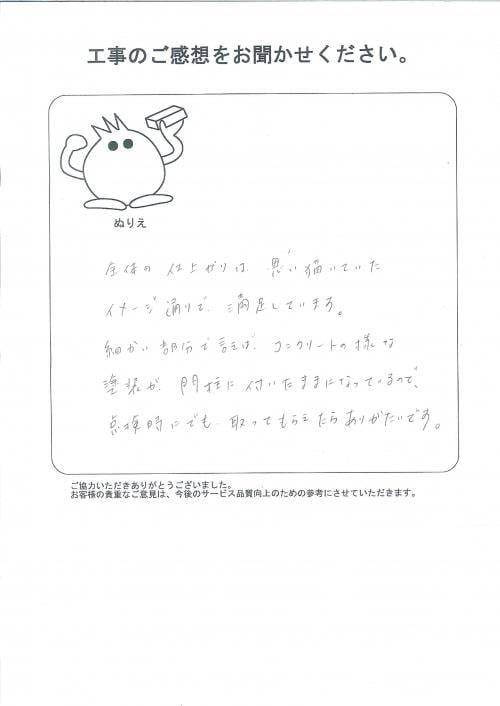 工事のご感想をお聞かせください。
ぬりえ
全体の仕上がりは、思い描いていた
イメージ通りで、満足しています。
細かい部分で言えば、コンクリートの様な
塗装が、門柱に付いたままになっているので、
点検時にでも、取ってもらえたらありがたいです。
ご協力いただきありがとうございました。
お客様の貴重なご意見は、今後のサービス品質向上のための参考にさせていただきます。